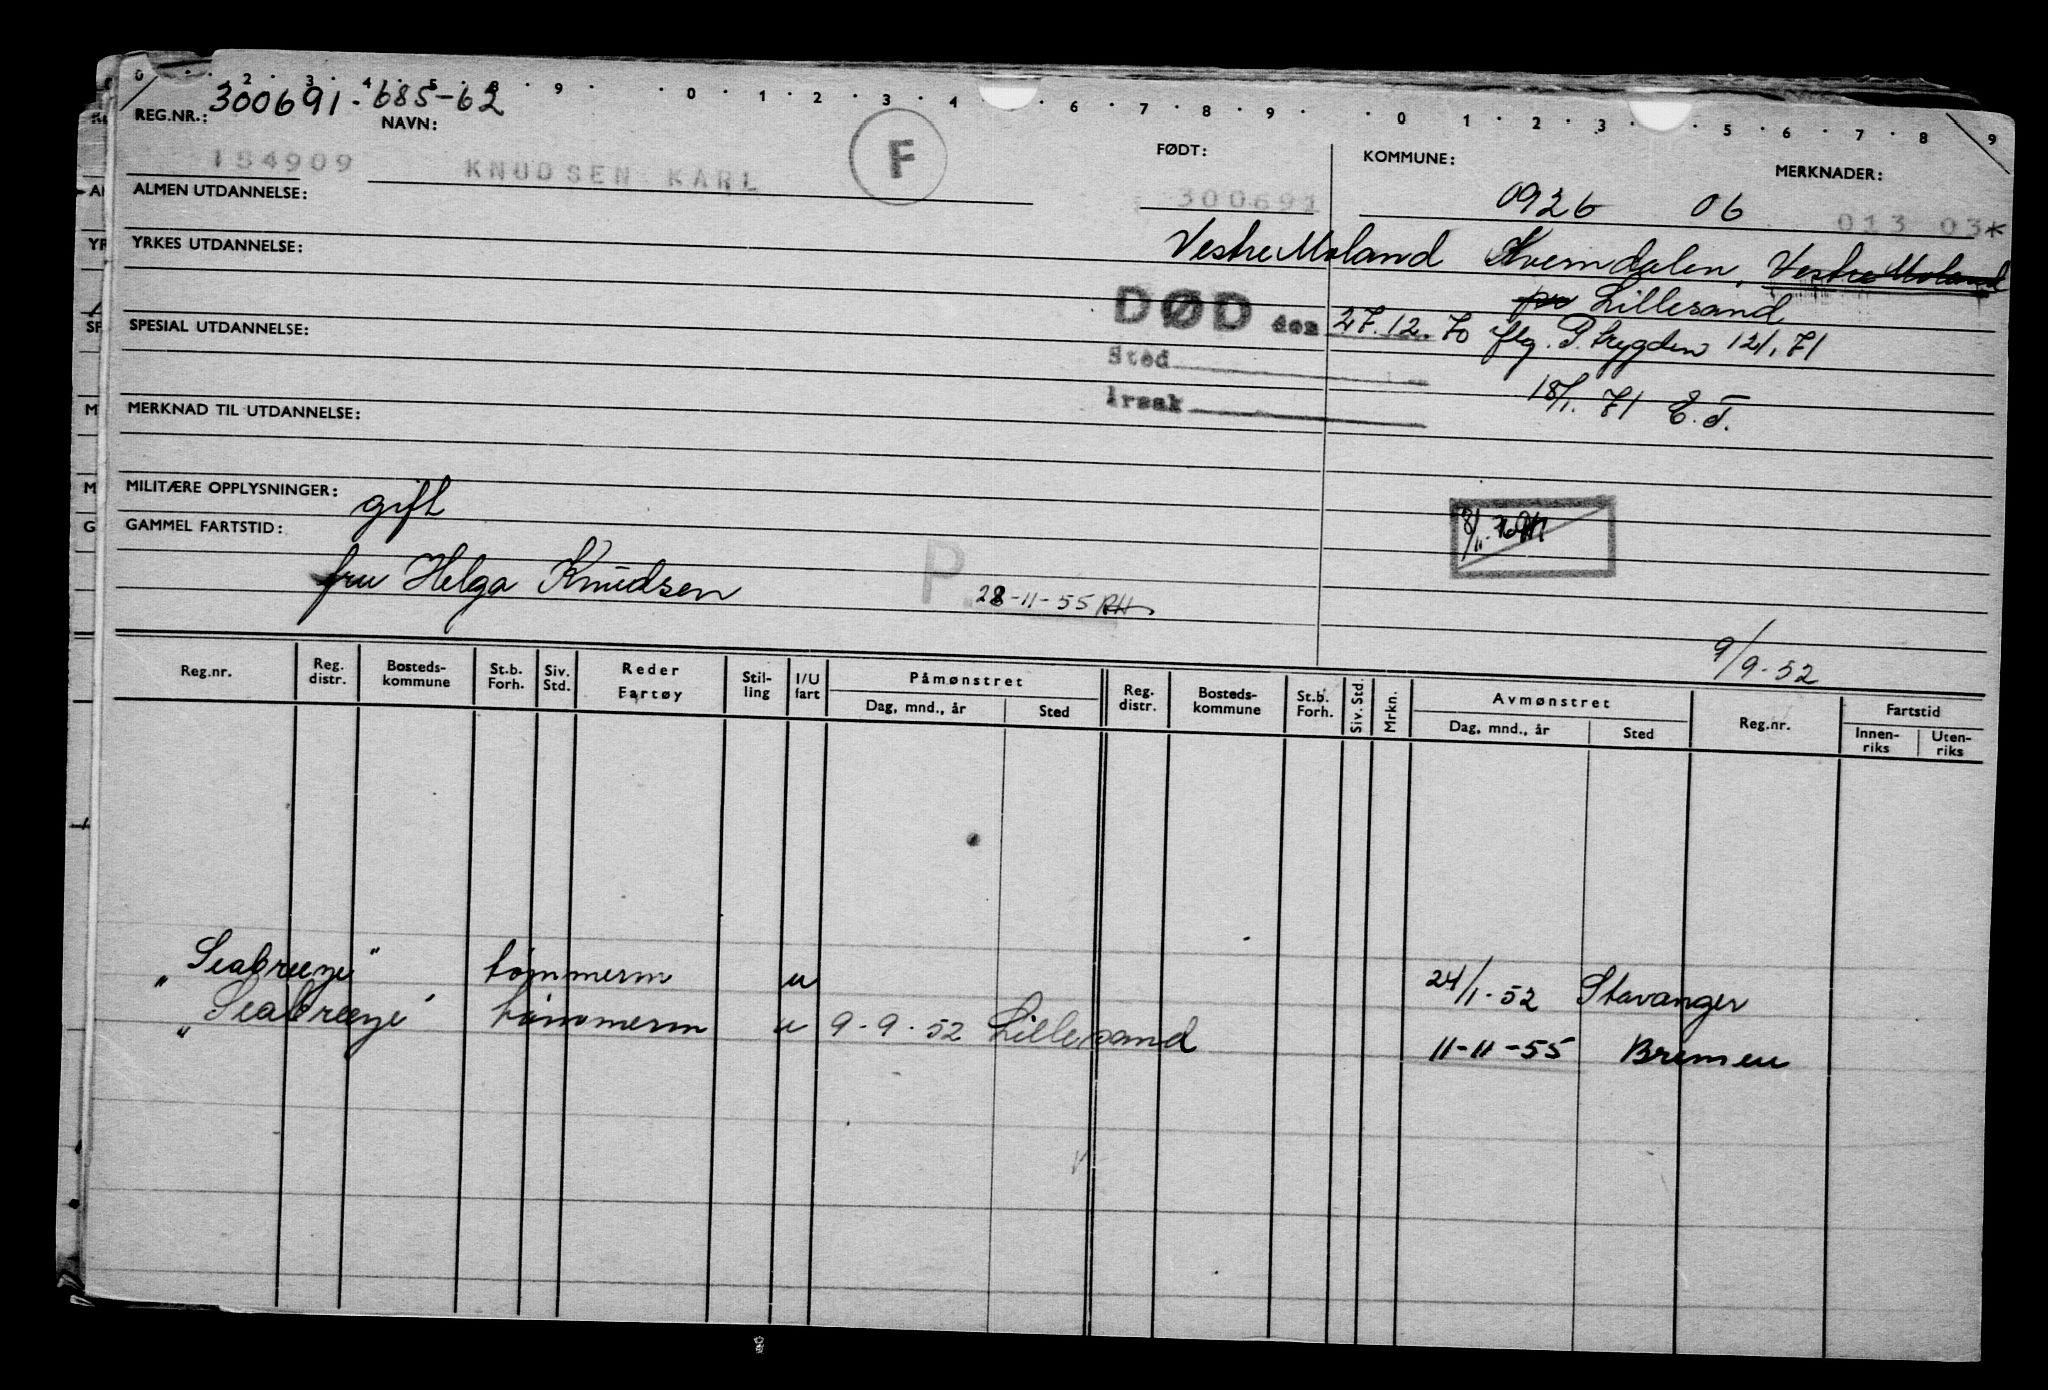 0 2 3 4 5 8 9 0 1 2 3 4 6 7 8 9 0 1 2 3 5 6 7 8 9
REG.NR.: 300691-685-62
NAVN: FØDT: KOMMUNE: MERKNADER:
184909 KNUDSEN KARL F 300691 0926 06 013 03*
ALMEN UTDANNELSE:
YRKES UTDANNELSE: Vestre Moland Kverndalen, Vestre Moland
pr Lillesand
SPESIAL UTDANNELSE: DØD den 27.12.70 flg. P. trygden 12/1.71
Sted
Årsak 18/1.71 E.T.
MERKNAD TIL UTDANNELSE:
MILITÆRE OPPLYSNINGER: gift
GAMMEL FARTSTID:
fru Helga Knudsen P. 28-11-55 RH
9/9-52
Reg.nr. Reg. distr. Bosteds-kommune St.b. Forh. Siv. Std. Reder Fartøy Stil-ling I/U fart Påmønstret Dag, mnd., år Sted Reg. distr. Bosteds-kommune St.b. Forh. Siv. Std. Mrkn. Avmønstret Dag, mnd., år Sted Reg.nr. Fartstid Innen-riks Uten-riks
"Seabreeze" tømmerm u 24/1-52 Stavanger
"Seabreeze" tømmerm u 9-9-52 Lillesand 11-11-55 Bremen